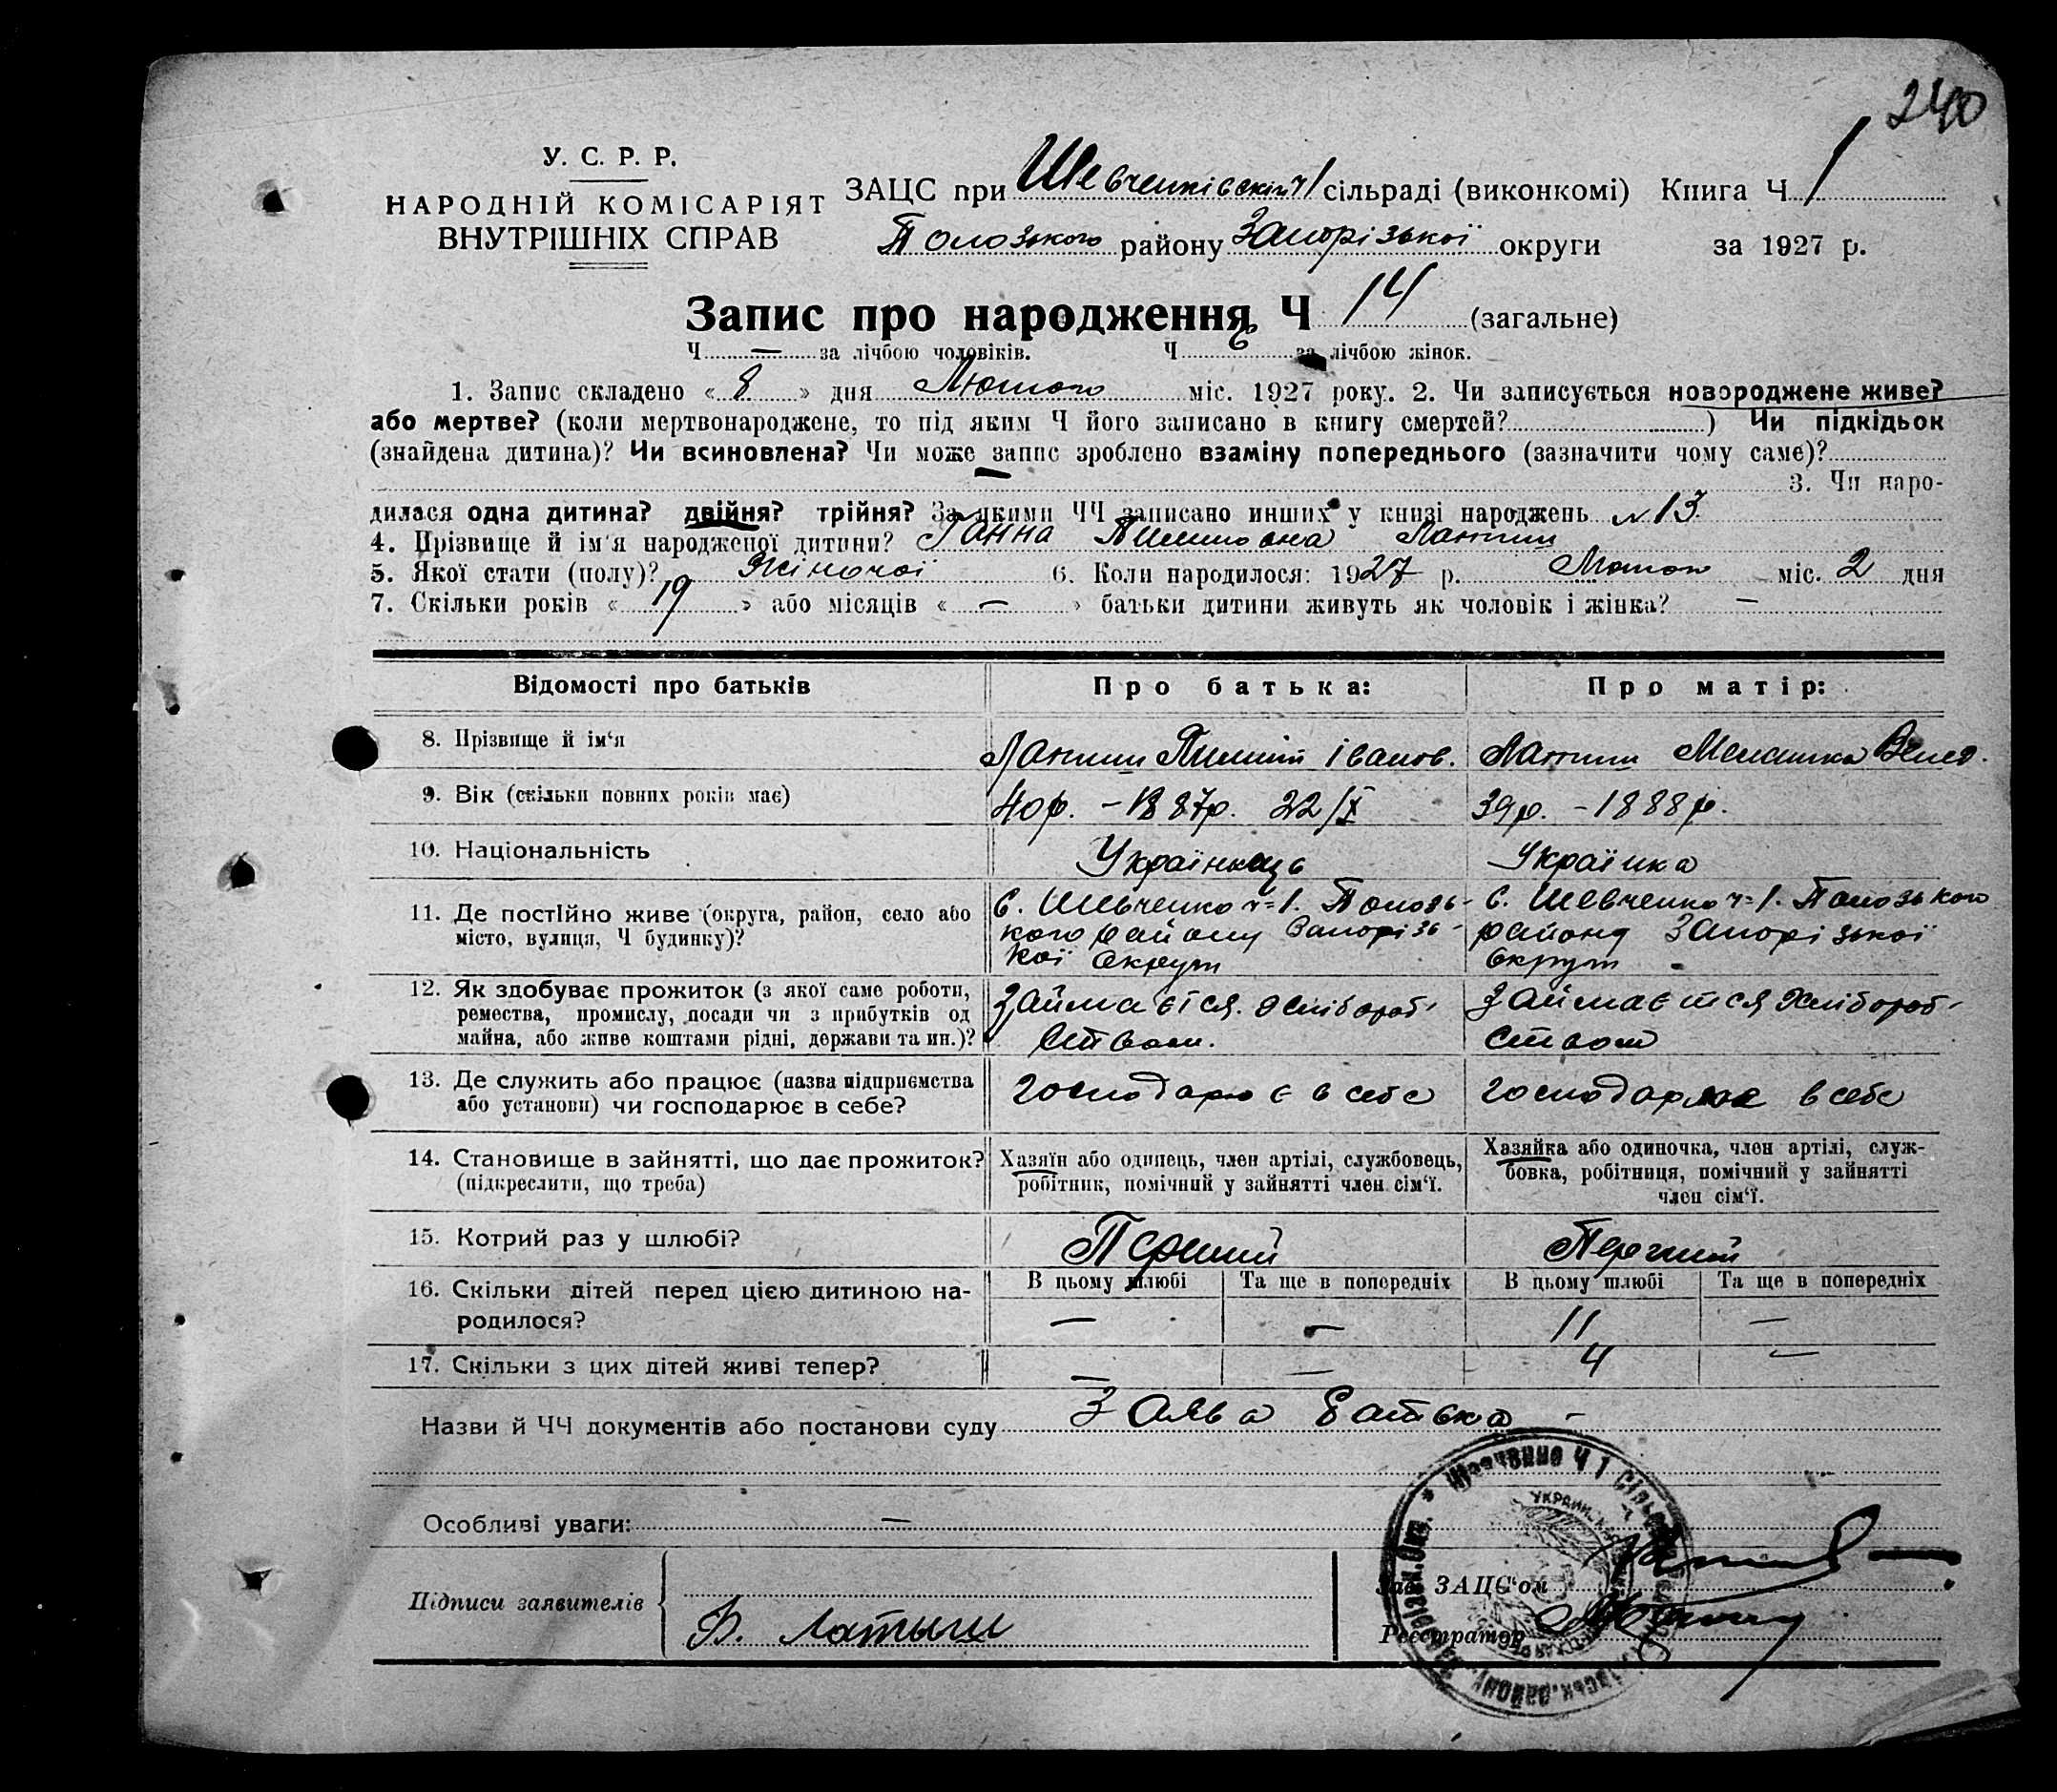 240
У. С. Р. Р.
НАРОДНІЙ КОМІСАРІЯТ
ВНУТРІШНІХ СПРАВ
ЗАЦС при Шевченківскій ч 1 сільраді (виконкомі) Книга Ч 1
Полозького району Запорізької округи за 1927 р.
Запис про народження Ч 14 (загальне)
Ч — за лічбою чоловіків. Ч 6 за лічбою жінок.
1. Запис складено « 8 » дня Лютого міс. 1927 року. 2. Чи записується новороджене живе?
або мертве? (коли мертвонароджене, то під яким Ч його записано в книгу смертей? ) Чи підкідьок
(знайдена дитина)? Чи всиновлена? Чи може запис зроблено взаміну попереднього (зазначити чому саме)?
— 3. Чи наро-
дилася одна дитина? двійня? трійня? За якими ЧЧ записано инших у книзі народжень № 13
4. Прізвище й ім'я народженої дитини? Ганна Латиш
5. Якої стати (полу)? Жіночої 6. Коли народилося: 1927 р. Лютого міс. 2 дня
7. Скільки років « 19 » або місяців « — » батьки дитини живуть як чоловік і жінка? —
Відомості про батьків Про батька: Про матір:
8. Прізвище й ім'я Латиш Пилипій Іванов. Латиш Меланка
9. Вік (скільки повних років має) 40р. – 1887р. 22/X 39р. – 1888р.
10. Національність Українець Українка
11. Де постійно живе (округа, район, село або
місто, вулиця, Ч будинку)?
с. Шевченко ч=1. Полозь-
кого району Запорізь-
кої округи
с. Шевченко ч=1. Полозького
району Запорізької
округи
12. Як здобуває прожиток (з якої саме роботи,
ремества, промислу, посади чи з прибутків од
майна, або живе коштами рідні, держави та ин.)?
Займаєтся хлібороб-
ством.
Займається хлібороб-
ством
13. Де служить або працює (назва підприємства
або установи) чи господарює в себе?
господарює в себе
господарює в себе
14. Становище в зайнятті, що дає прожиток?
(підкреслити, що треба)
Хазяїн або одинець, член артілі, службовець,
робітник, помічний у зайнятті член сім'ї.
Хазяйка або одиночка, член артілі, служ-
бовка, робітниця, помічний у зайнятті
член сім'ї.
15. Котрий раз у шлюбі? Перший Перший
16. Скільки дітей перед цією дитиною на-
родилося?
В цьому шлюбі Та ще в попередніх В цьому шлюбі Та ще в попередніх
— — 11 —
17. Скільки з цих дітей живі тепер? — — 4 —
Назви й ЧЧ документів або постанови суду Заява батька –
Особливі уваги: —
Підписи заявителів
Зав. ЗАЦС'ом
Латыш
Реєстратор
Шевченко Ч 1 сільськ.